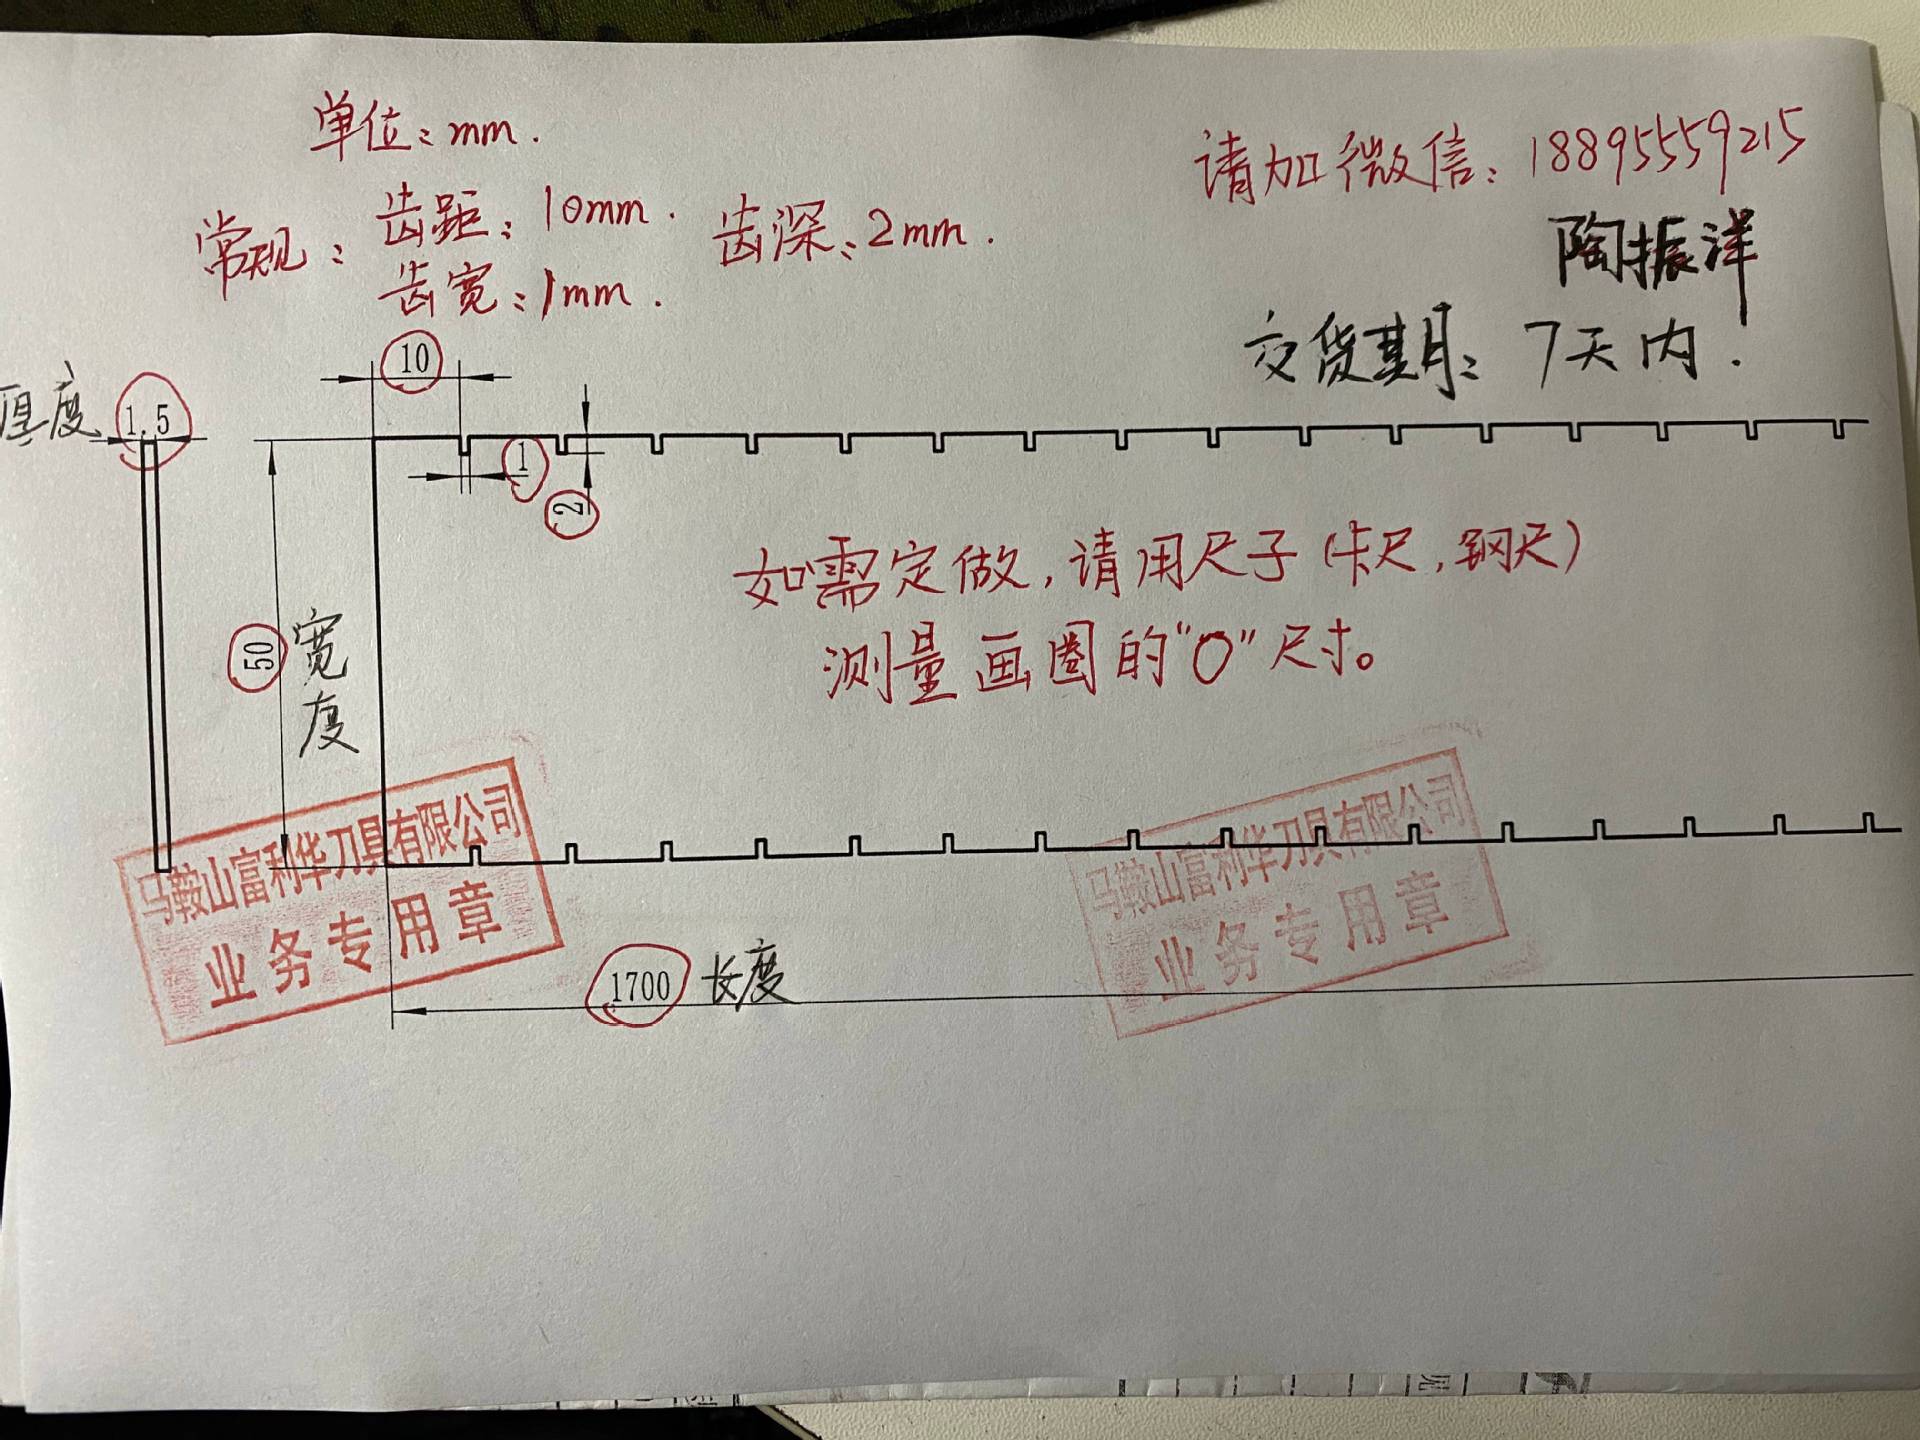 单位:mm.
请加微信:18895559215
常规:齿距:10mm. 齿深:2mm.
齿宽:1mm.
陶振洋
交货期:7天内.
厚度
1.5
10
1
2
如需定做,请用尺子(卡尺,钢尺)
测量画圈的"O"尺寸。
50
宽度
马鞍山富利华刀具有限公司
业务专用章
马鞍山富利华刀具有限公司
业务专用章
1700 长度